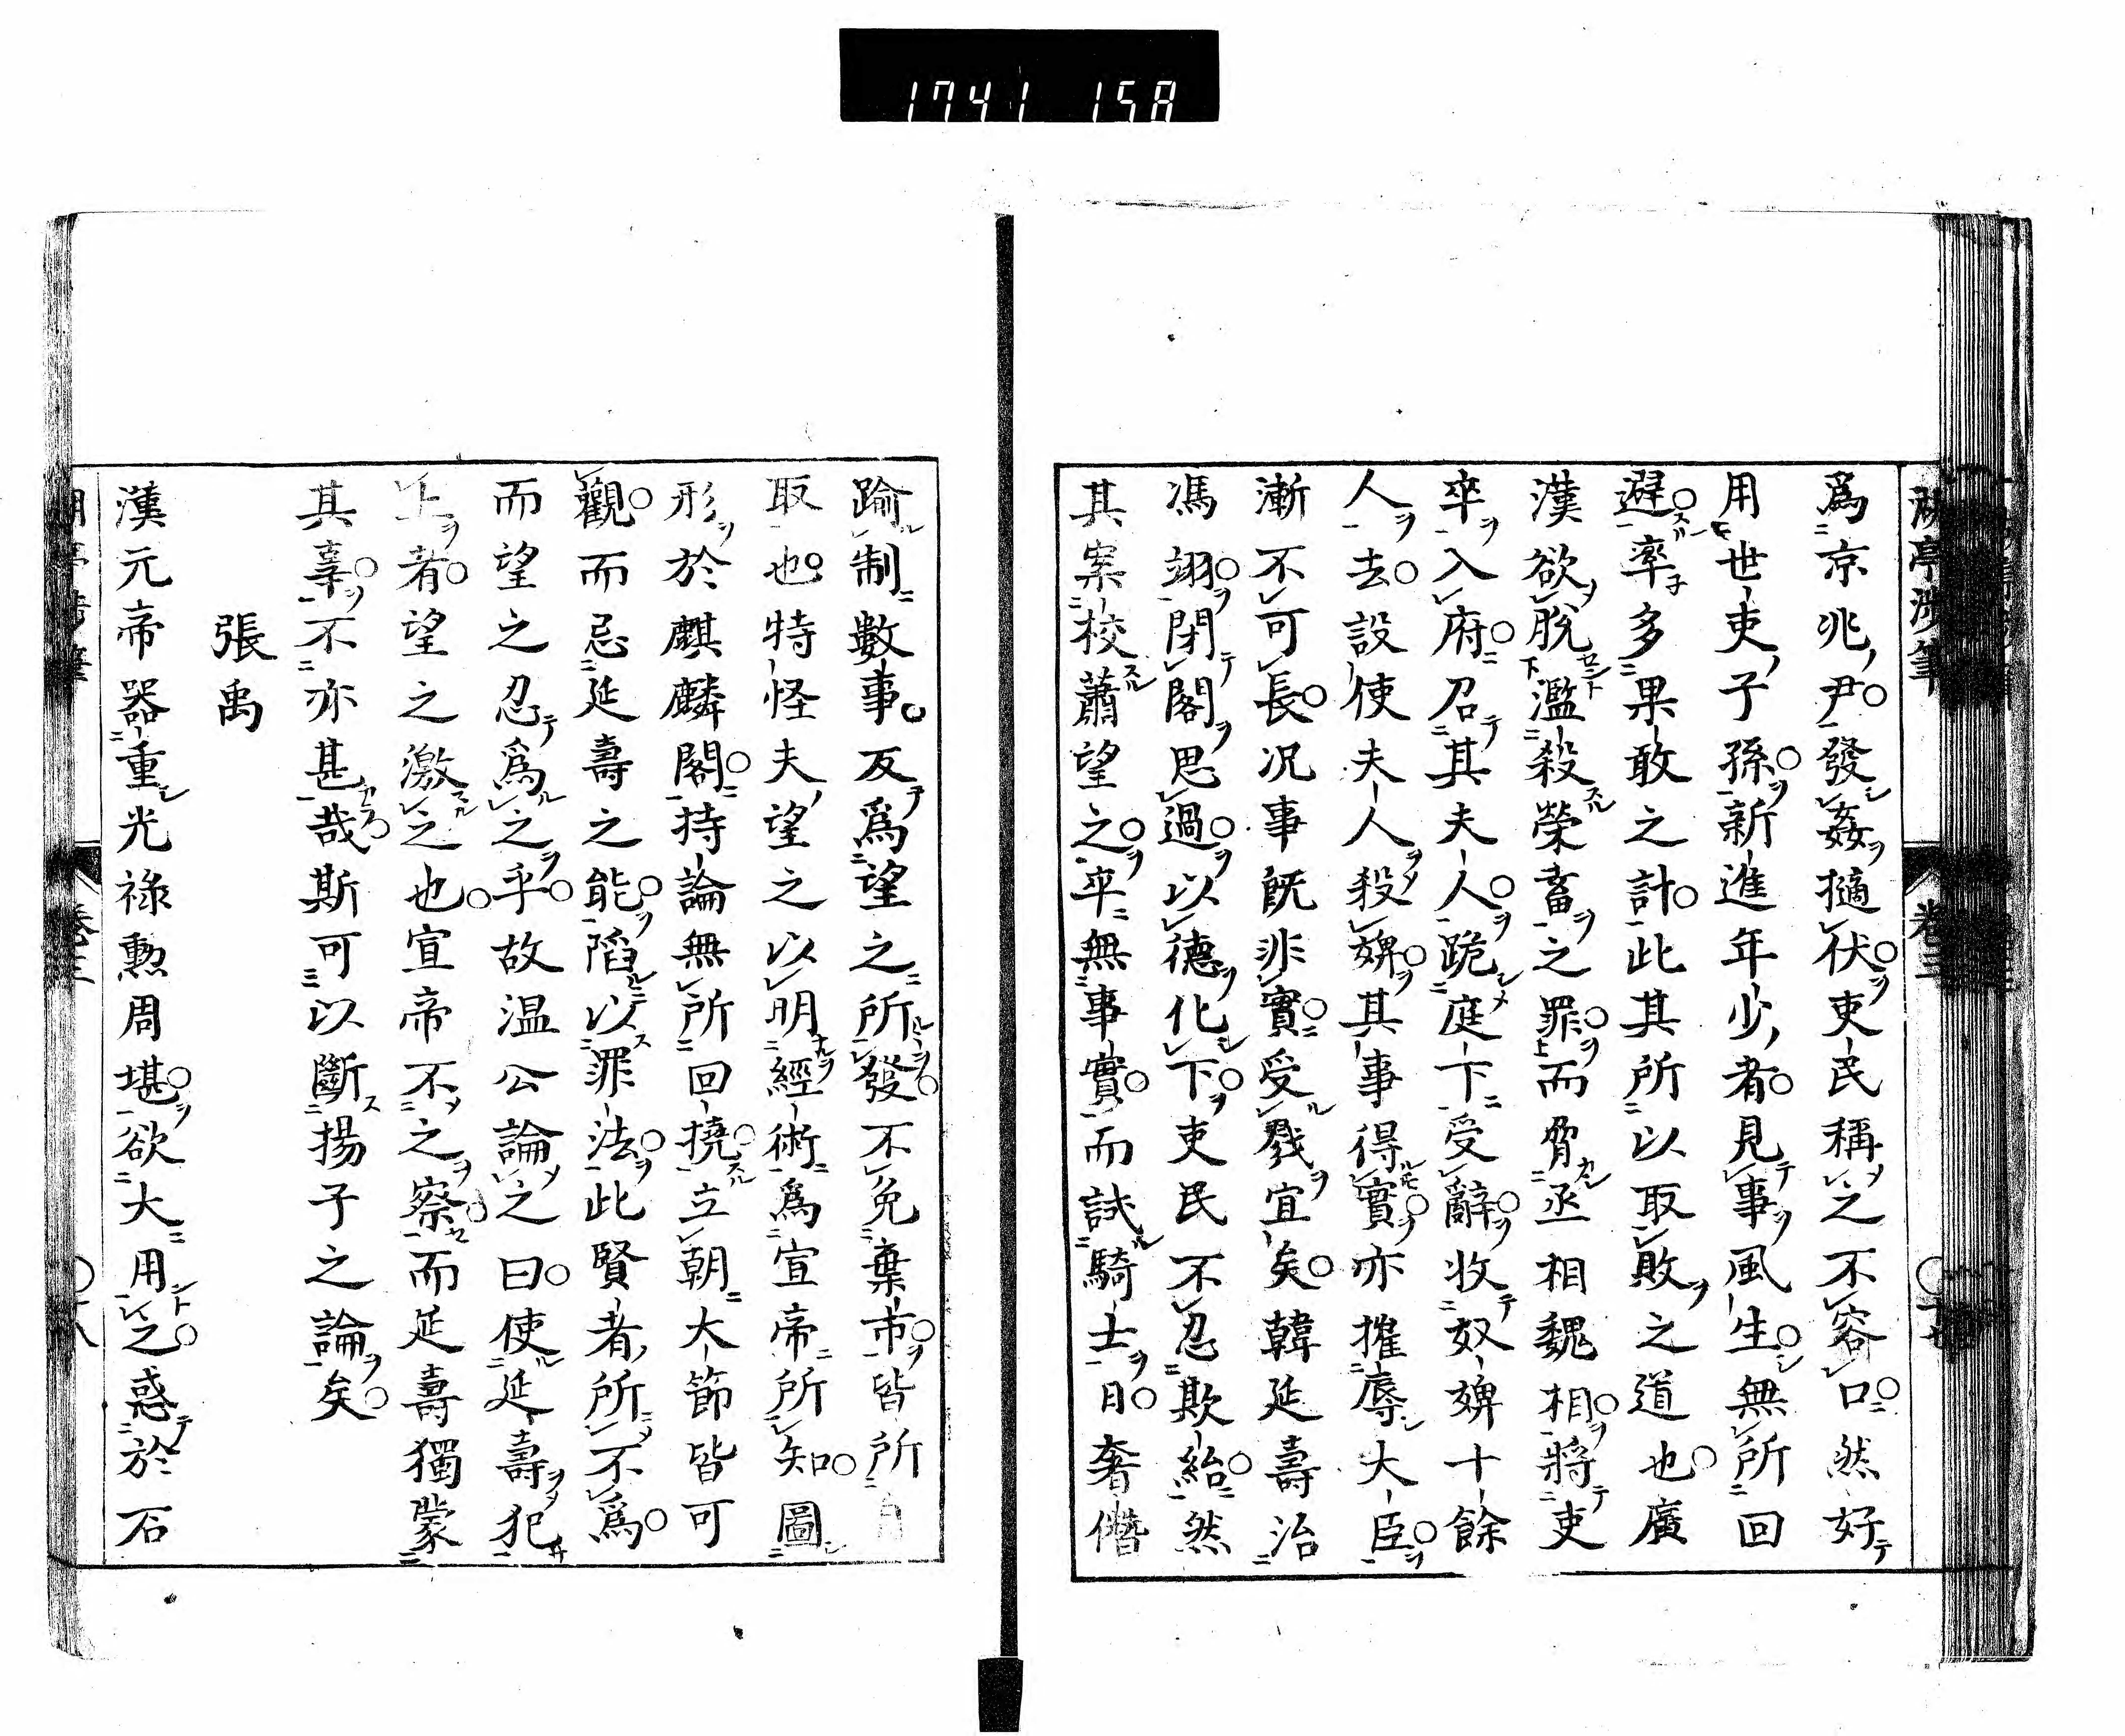 1741 158
爲京兆尹發姦擿伏吏民稱之不容口然好
用世吏子孫新進年少者見事風生無所回
避率多果敢之計此其所以取敗之道也廣
漢欲脫濫殺榮畜之罪而脅丞相魏相將吏
卒入府召其夫人跪庭下受辭收奴婢十餘
人去設使夫人殺婢其事得實亦摧辱大臣
漸不可長況事既非實受戮宜矣韓延壽治
馮翊閉閣思過以德化下吏民不忍欺紿然
其案校蕭望之卒無事實而試騎士日奢僭
踰制數事反爲望之所發不免棄市皆所自
取也特怪夫望之以明經術爲宣帝所知圖
形於麒麟閣持論無所回撓立朝大節皆可
觀而忌延壽之能陷以罪法此賢者所不爲
而望之忍爲之乎故溫公論之曰使延壽犯
上者望之激之也宣帝不之察而延壽獨蒙
其辜不亦甚哉斯可以斷揚子之論矣
張禹
漢元帝器重光祿勲周堪欲大用之惑於石